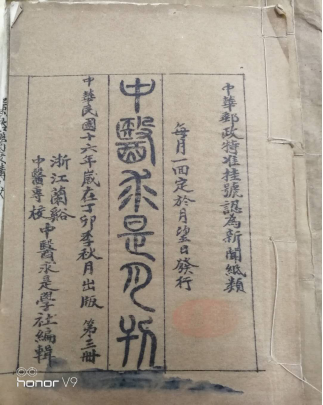 中華郵政特准挂號認為新聞紙類
每月一回定於月望日發行
中醫求是月刊
中華民國十六年歲在丁卯季秋月出版 第三冊
浙江蘭谿
中醫專校
中醫求是學社編輯
honor V9